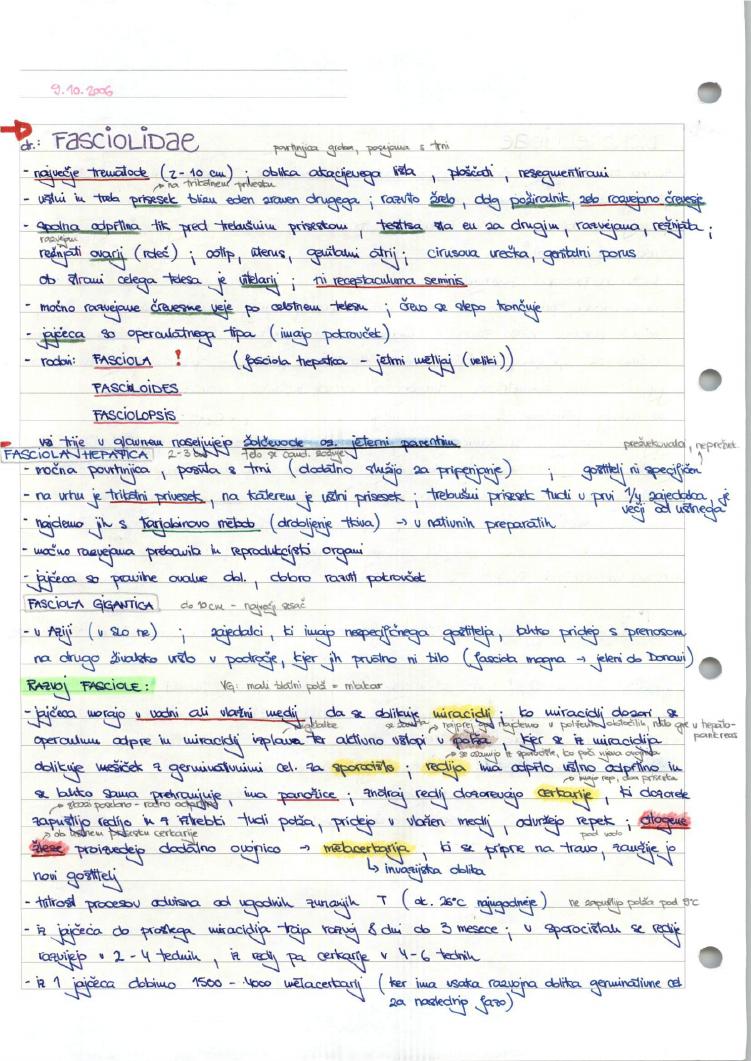 9.10.2006
dr.: FASCIOLIDAE
površnjica groba, posejana s trni
- največje trematode (2-10 cm) ; oblika akacijevega lista, ploščati, nesegmentirani
na trikotnem privesku
- ustni in treb. prisesek blizu eden zraven drugega ; razvito žrelo, dolg požiralnik, zelo razvejano črevesje
- spolna odprtina tik pred trebušnim priseskom, testisa sta en za drugim, razvejana, režnjata ;
razvejani
režnjati ovarij (rdeč) ; ootip, uterus, genitalni atrij ; cirusova vrečka, genitalni porus
ob strani celega telesa je vitelarij ; ni receptaculuma seminis
- močno razvejane črevesne veje po celotnem telesu ; črevo se slepo končuje
- jajčeca so operculatnega tipa (imajo pokrovček)
- rodovi: FASCIOLA ! (fasciola hepatica - jetrni metljaj (veliki))
FASCILOIDES
FASCIOLOPSIS
vsi trije v glavnem naseljujejo žolčevode oz. jeterni parenhim
FASCIOLA HEPATICA 2-3 cm
telo se caud. zožuje
prežvekovalci, neprežvek.
- močna površnjica, posuta s trni (dodatno služijo za pripenjanje) ; gostitelj ni specifičen
- na vrhu je trikotni privesek, na katerem je ustni prisesek ; trebušni prisesek tudi v prvi 1/4 zajedalca, je
večji od ustnega
- najdemo jih s metodo (drobljenje tkiva) → v nativnih preparatih
- močno razvejana prebavila in reprodukcijski organi
- jajčeca so pravilne ovalne obl., dobro razvit pokrovček
FASCIOLA GIGANTICA do 10 cm - največji sesač
- v Aziji (v SLO ne) ; zajedalci, ki imajo nespecifičnega gostitelja, lahko pridejo s prenosom
na drugo živalsko vrsto v področje, kjer jih prvotno ni bilo (fasciola magna → jeleni ob Donavi)
RAZVOJ FASCIOLE: VG: mali blatni polž = mlakar
- jajčeca morajo v vodni ali vlažni medij, da se oblikuje miracidij ko miracidij dozori se
najprej ga najdemo v polževih, nato gre v hepato-
pankreas
operculum odpre in miracidij izplava ter aktivno vstopi v polža kjer se iz miracidija
oblikuje mešiček z germinativnimi cel. za sporocisto ; redija ima odprto ustno odprtino in
imajo rep, dva priseska
se lahko sama prehranjuje, ima panožice, znotraj redij dozorevajo cerkarije, ki dozorele
zapustijo redijo in z izležbo tudi polža, pridejo v vlažen medij, odvržejo repek ; citogene
ob ustnem prisesku cerkarije
pod vodo
žleze proizvedejo dodatno ovojnico → metacerkarija, ki se pripne na travo, zaužije jo
↳ invazijska oblika
novi gostitelj
- hitrost procesov odvisna od ugodnih zunanjih T (ok. 26°C najugodneje) ne zapustijo polža pod 9°C
- iz jajčeca do prostega miracidija traja razvoj 8 dni do 3 mesece ; v sporocistah se redije
razvijejo v 2-4 tednih, iz redij pa cerkarije v 4-6 tednih
- iz 1 jajčeca dobimo 1500 - 4000 metacerkarij (ker ima vsaka razvojna oblika germinativne cel
za naslednjo fazo)